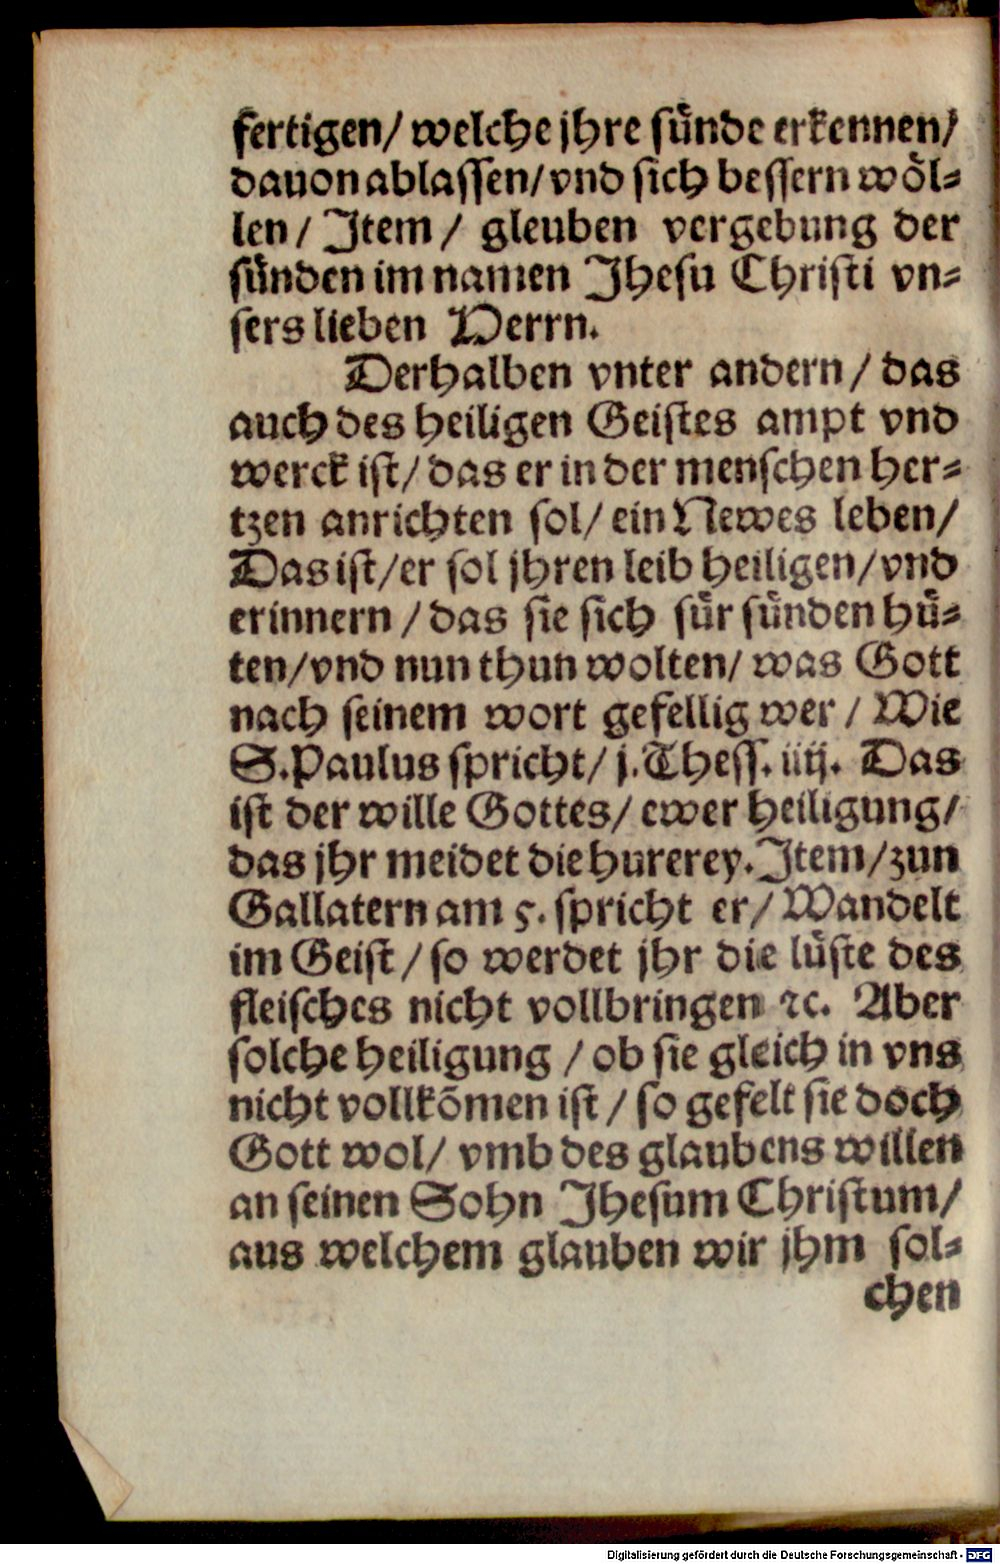 fertigen/ welche jhre sünde erkennen/
dauon ablassen/ vnd sich bessern wöl=
len/ Item/ gleuben vergebung der
sünden im namen Jhesu Christi vn=
sers lieben Herrn.
Derhalben vnter andern/ das
auch des heiligen Geistes ampt vnd
werck ist/ das er in der menschen her=
tzen anrichten sol/ ein Newes leben/
Das ist/ er sol jhren leib heiligen/ vnd
erinnern/ das sie sich für sünden hü=
ten/ vnd nun thun wolten/ was Gott
nach seinem wort gefellig wer/ Wie
S. Paulus spricht/ j. Thess. iiij. Das
ist der wille Gottes/ ewer heiligung/
das jhr meidet die hurerey. Item/ zun
Gallatern am 5. spricht er/ Wandelt
im Geist/ so werdet jhr die lüste des
fleisches nicht vollbringen ꝛc. Aber
solche heiligung/ ob sie gleich in vns
nicht vollkõmen ist/ so gefelt sie doch
Gott wol/ vmb des glaubens willen
an seinen Sohn Jhesum Christum/
aus welchem glauben wir jhm sol=
chen
Digitalisierung gefördert durch die Deutsche Forschungsgemeinschaft - DFG